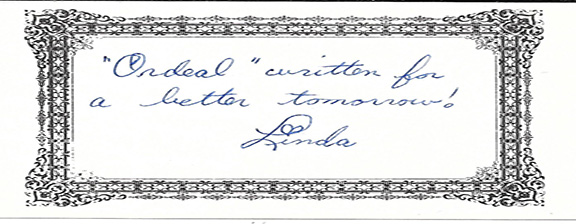 "Ordeal" written for
a better tomorrow!
Linda